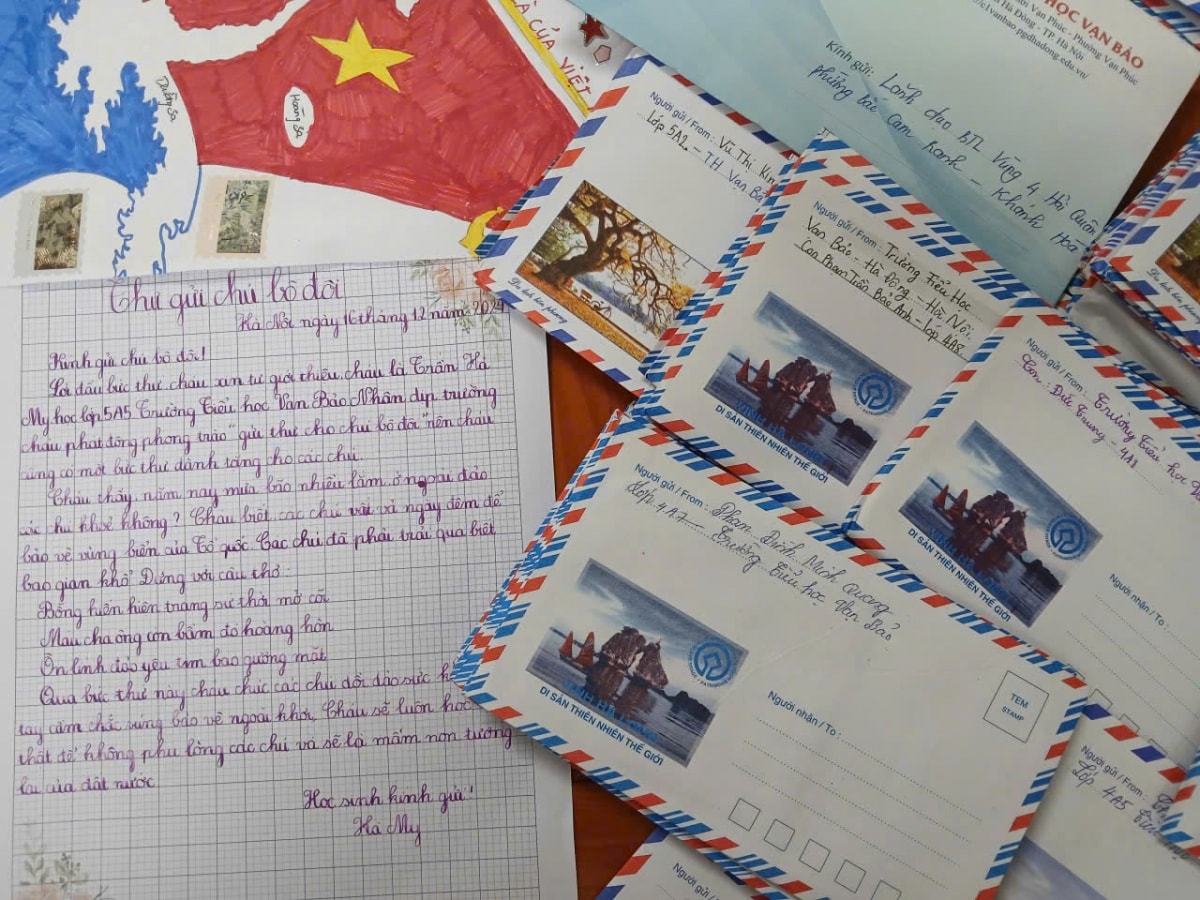 Trường Sa
Hoàng Sa
CỦA VIỆT
HỌC VẠN BẢO
Vạn Phúc - Phường Vạn Phúc
Hà Đông - TP. Hà Nội
c1vanbao.pgdhadong.edu.vn/
Kính gửi: Lãnh đạo BTL Vùng 4 Hải Quân
phường bắc Cam Ranh - Khánh Hoà
Thư gửi chú bộ đội
Hà Nội ngày 16 tháng 12 năm 2024
Kính gửi chú bộ đội!
Lời đầu bức thư cháu xin tự giới thiệu, cháu là Trần Hà
My học lớp 5A5 Trường Tiểu học Vạn Bảo. Nhân dịp trường
cháu phát động phong trào "gửi thư cho chú bộ đội" nên cháu
cũng có một bức thư dành tặng cho các chú.
Cháu thấy năm nay mưa bão nhiều lắm, ở ngoài đảo
các chú khoẻ không? Cháu biết các chú vất vả ngày đêm để
bảo vệ vùng biển của Tổ quốc. Các chú đã phải trải qua biết
bao gian khổ. Đúng với câu thơ:
Bỗng luôn hiện trang sử thời mở cõi
Máu cha ông còn bầm đỏ hoàng hôn
Ơn lính đảo yêu tin bao gương mặt
Qua bức thư này cháu chúc các chú dồi dào sức
tay cầm chắc súng bảo vệ ngoài khơi. Cháu sẽ luôn học
thật để không phụ lòng các chú và sẽ là mầm non tương
lai của đất nước
Học sinh kính gửi!
Hà My
Người gửi / From: Vũ Thị Kim
Lớp 5A2 - TH Vạn Bảo
Người gửi / From: Trường Tiểu Học
Vạn Bảo - Hà Đông - Hà Nội.
Con Phan Trần Bảo Anh - lớp 4A8.
VỊNH HẠ LONG
DI SẢN THIÊN NHIÊN THẾ GIỚI
Người gửi / From: Trường Tiểu học
Con: Đức Trung - 4A1
VỊNH HẠ LONG
DI SẢN THIÊN NHIÊN THẾ GIỚI
Người nhận / To:
Người gửi / From: Phan Đình Minh Quang
Lớp 4A7 - Trường Tiểu học Vạn Bảo
VỊNH HẠ LONG
DI SẢN THIÊN NHIÊN THẾ GIỚI
Người nhận / To:
TEM
STAMP
Người gửi / From:
Lớp 4A5
Người gửi / From: